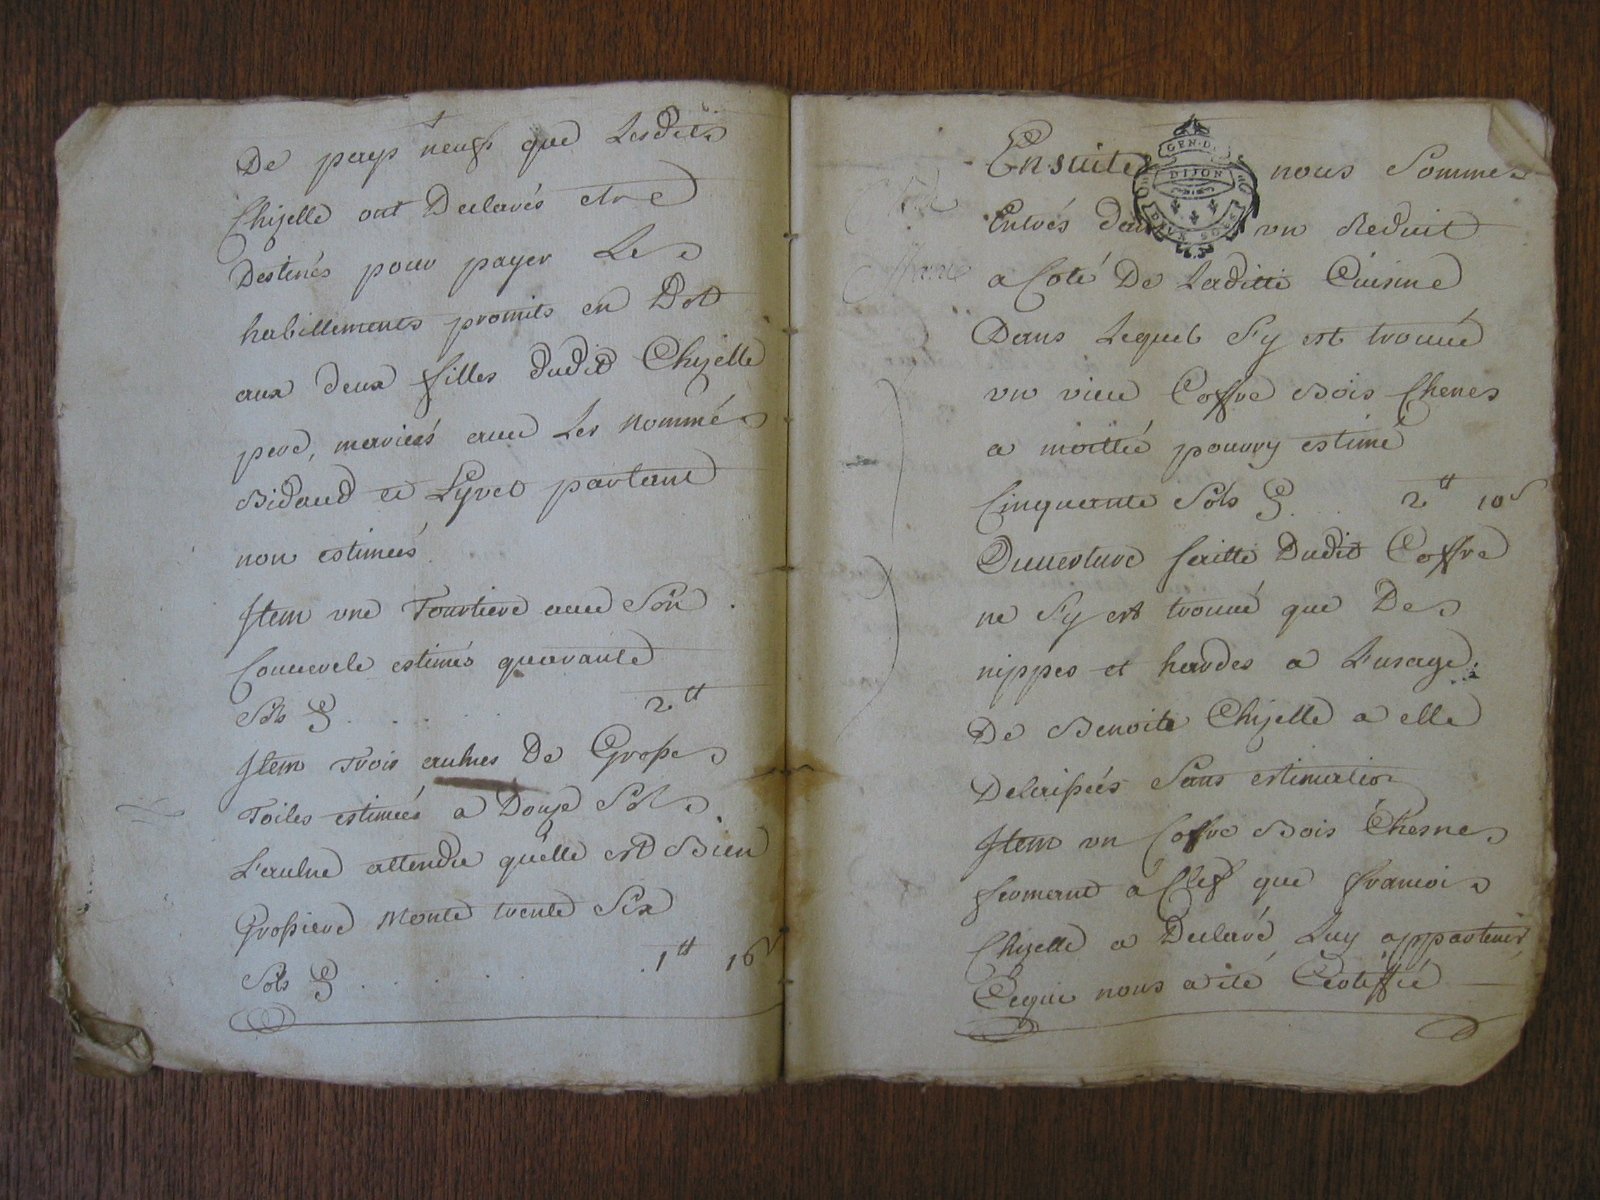 De pays neufs que Lesdits
Chizelle ont Declarés etre
Destinés pour payer Les
habillements promits en Dot
aux deux filles dudit Chizelle
pere, mariées avec Les nommés
Bidaud et Lyvet partant
non estimées
Item une Tourtiere avec Son
Couvercle estimés quarante
Sols 2 tt
Item Trois aulnes De Grosses
Toiles estimées a Douze Sols
L'aulne attendu qu'elle est Bien
Grossiere Monte trente Six
Sols 1 tt 16 s
Ensuite nous Sommes
Entrés dans un Reduit
a Coté De Laditte Cuisine
Dans Lequel S'y est trouvé
un vieu Coffre Bois Chenes
a moitié pourry estimé
Cinquante Sols 2 tt 10 s
Ouverture faitte Dudit Coffre
ne S'y est trouvé que Des
nippes et hardes a L'usage
De Benoite Chizelle a elle
Delaissées Sans estimation
Item un Coffre Bois Chesnes
fermant a Clef que francois
Chizelle a Declaré Luy appartenir
Cequi nous a eté Certiffié
GEN. D.
DIJON
DEUX SOLS